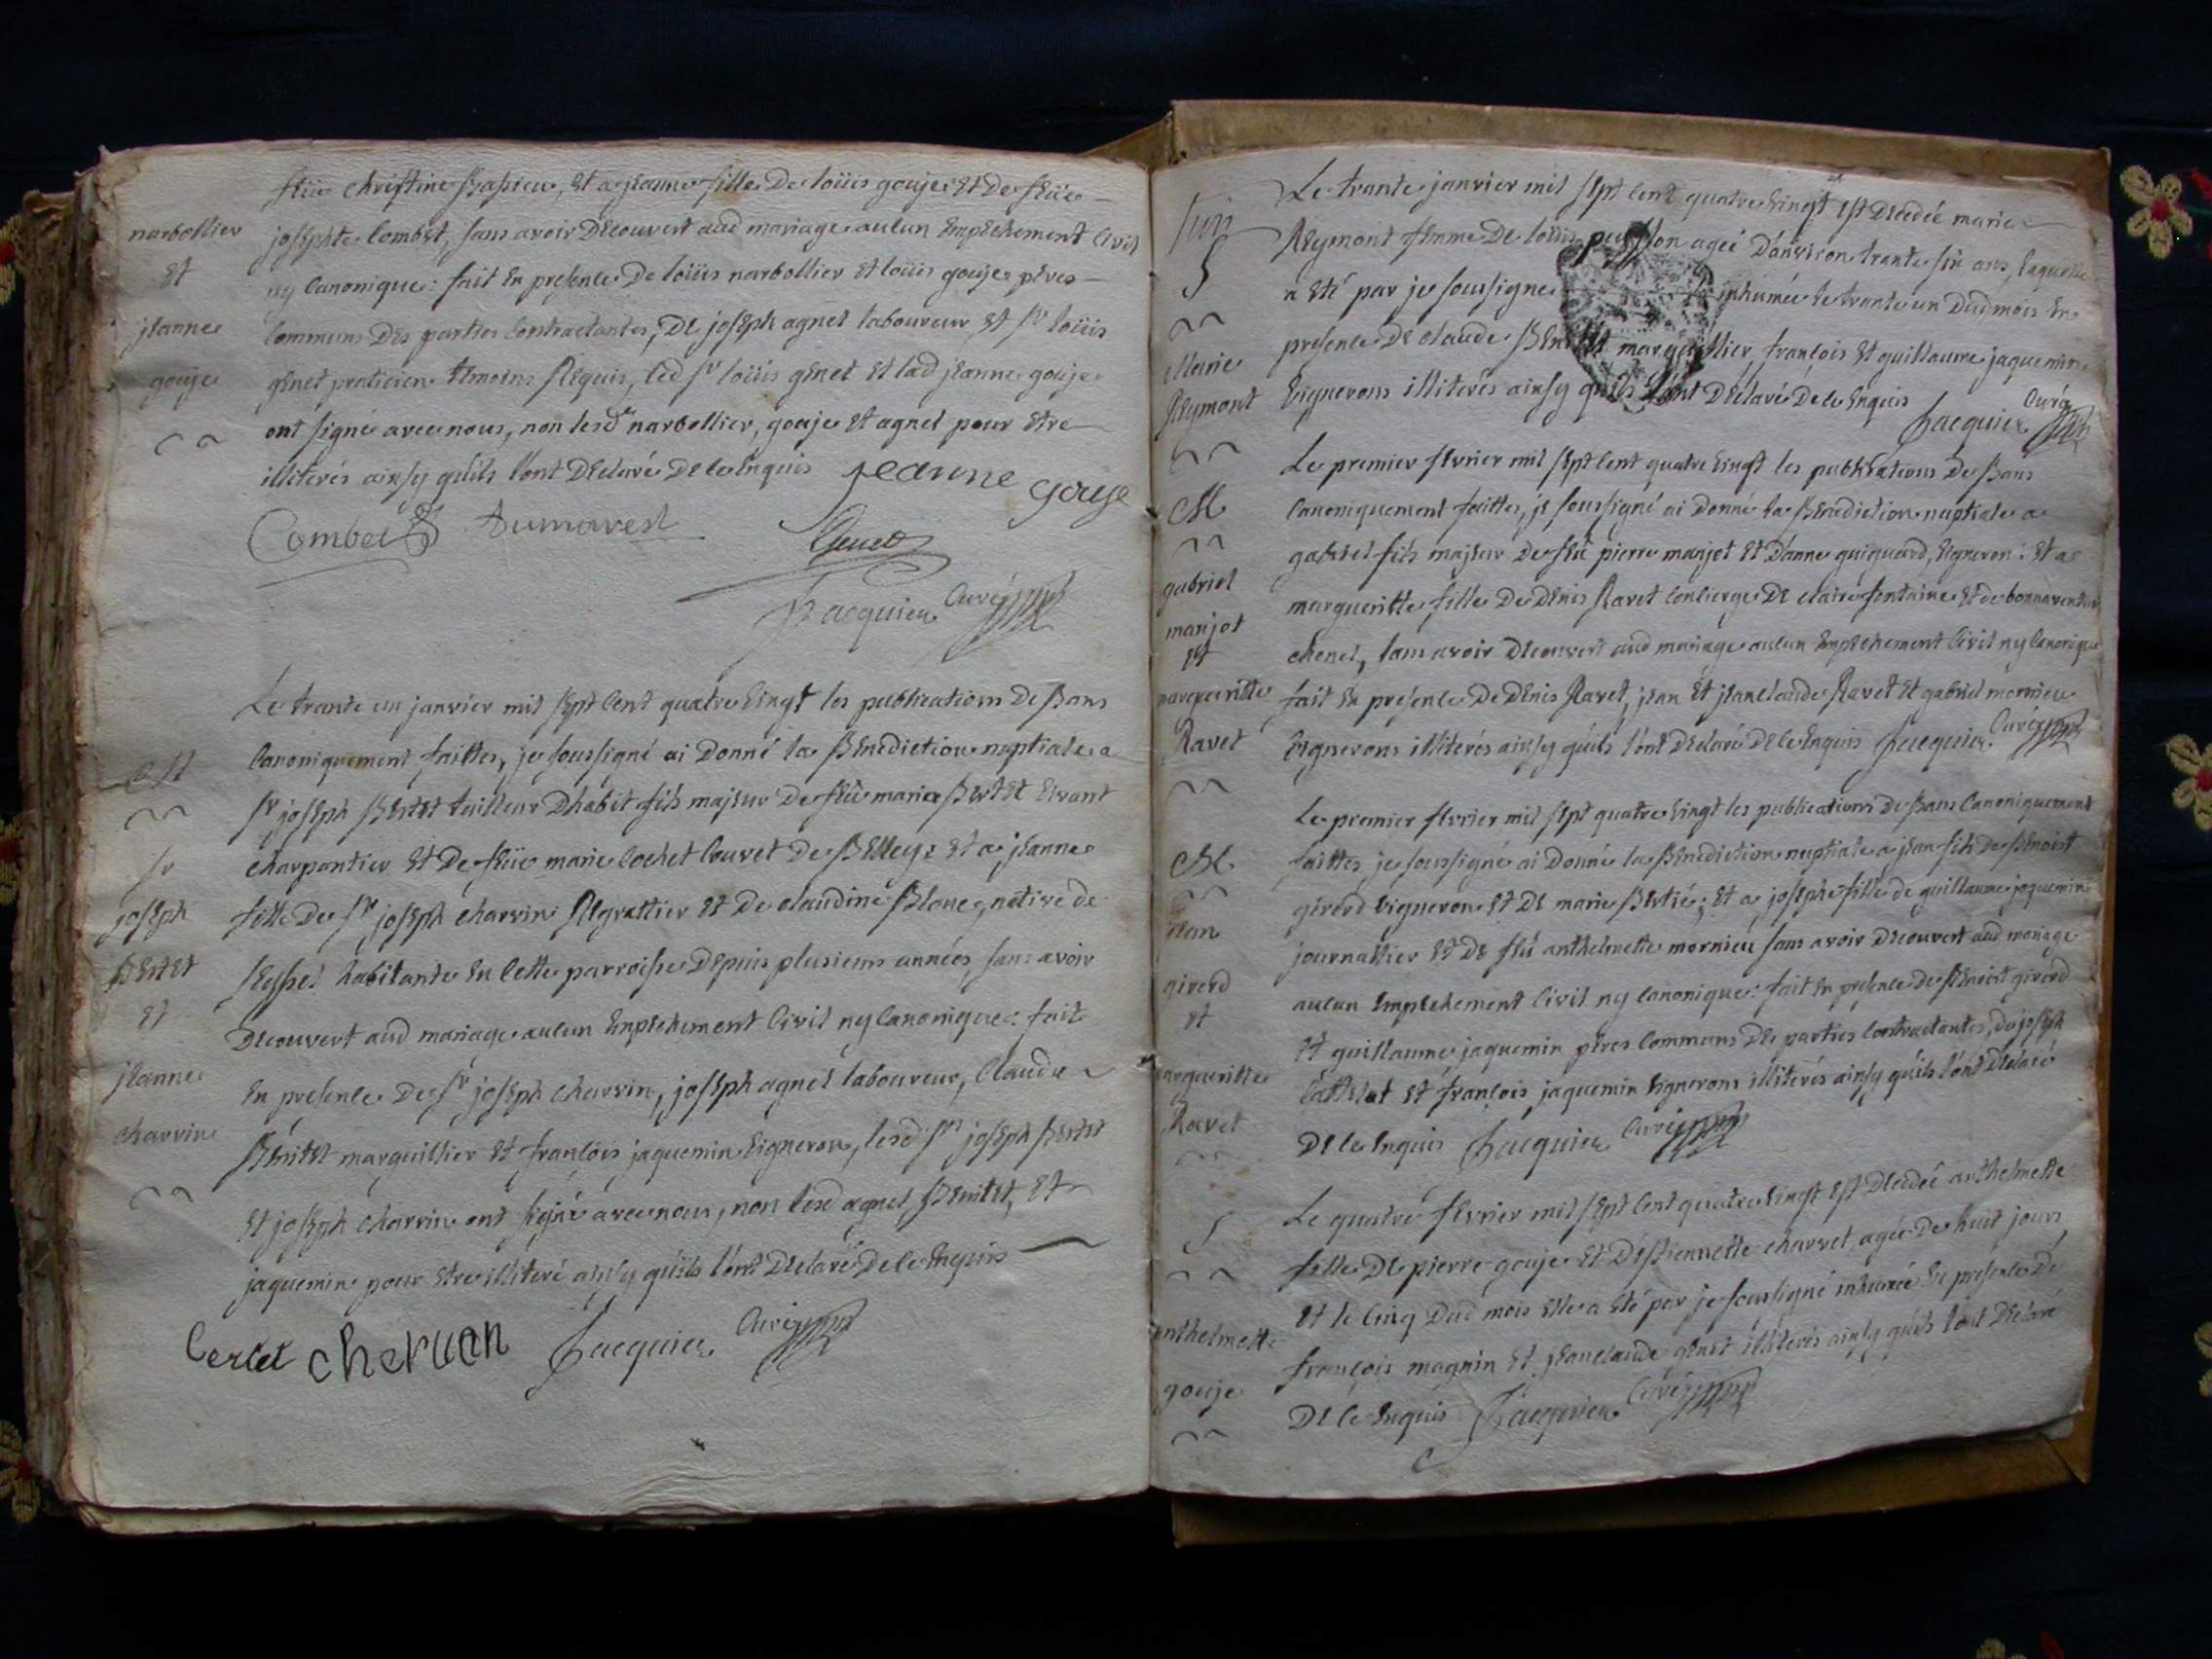 narbollier
et
jeanne
gouje
feüe christine, et a jeanne fille de loüis gouje et de feüe
josephte combet, sans avoir decouvert aud mariage aucun empechement civil
ny canonique: fait en presence de loüis narbollier et loüis gouje peres
communs des parties contractantes, de joseph agnel laboureur et sr loüis
genet praticien temoins requis, led sr loüis genet et lad jeanne gouje
ont signé avec nous, non lesd narbollier, gouje et agnel pour etre
illiterés ainsy qu'ils l'ont declaré de ce enquis jeanne gouje
Combet Dumarest
Genet
Jacquier Curé
M
sr
joseph
Bertet
et
jeanne
charvin
Le trante un janvier mil sept cent quatre vingt les publications de bans
canoniquement faittes, je soussigné ai donné la benediction nuptiale a
sr joseph Bertet tailleur d'habit fils majeur de feü marie Bertet vivant
charpantier et de feüe marie cochet couvet de Belley: et a jeanne
fille de sr joseph charvin Regrattier et de claudine Blanc, native de
seyssel habitante en cette parroisse depuis plusieurs années sans avoir
decouvert aud mariage aucun empechement civil ny canonique: fait
en presence de sr joseph charvin, joseph agnel laboureur, claude
Benitet marguillier et françois jaquemin vigneron, lesd srs joseph Bertet
et joseph charvin ont signé avec nous, non lesd agnel, Benitet, et
jaquemin pour etre illiteré ainsy qu'ils l'ont declaré de ce enquis
Bertet cheruen Jacquier Curé
S
Marie
Reymont
Le trante janvier mil sept cent quatre vingt est decedée marie
Reymont femme de loüis agée d'anviron trante six ans, laquelle
a eté par je soussigné inhumée le trante un dud mois en
presence de claude Benitet marguillier, françois et guillaume jaquemin
vignerons illiterés ainsy qu'ils l'ont declaré de ce enquis Jacquier Curé
M
gabriel
manjot
et
margueritte
Ravet
Le premier fevrier mil sept cent quatre vingt les publications de bans
canoniquement faittes, je soussigné ai donné la benediction nuptiale a
gabriel fils majeur de feü pierre manjot et d'anne guiguard, vigneron: et a
margueritte fille de denis Ravet concierge de claire fontaine et de bonnaventure
chenel, sans avoir decouvert aud mariage aucun empechement civil ny canonique
fait en presence de denis Ravet, jean et jeanclaude Ravet et gabriel mornieu
vignerons illiterés ainsy qu'ils l'ont declaré de ce enquis Jacquier Curé
M
jean
girerd
et
margueritte
Ravet
Le premier fevrier mil sept quatre vingt les publications de bans canoniquement
faittes je soussigné ai donné la benediction nuptiale a jean fils de Benoist
girerd vigneron et de marie Bertié; et a josephe fille de guillaume jaquemin
journallier et de feü anthelmette mornieu sans avoir decouvert aud mariage
aucun empechement civil ny canonique: fait en presence de Benoist girerd
et guillaume jaquemin peres communs des parties contractantes, de joseph
et françois jaquemin vignerons illiterés ainsy qu'ils l'ont declaré
de ce enquis Jacquier Curé
S
anthelmette
gouje
Le quatre fevrier mil sept cent quatre vingt est decedée anthelmette
fille de pierre gouje et d'estiennette charvet, agée de huit jours
et le cinq dud mois elle a eté par je soussigné inhumée en presence de
françois magnin et jeanclaude genet illiterés ainsy qu'ils l'ont declaré
de ce enquis Jacquier Curé